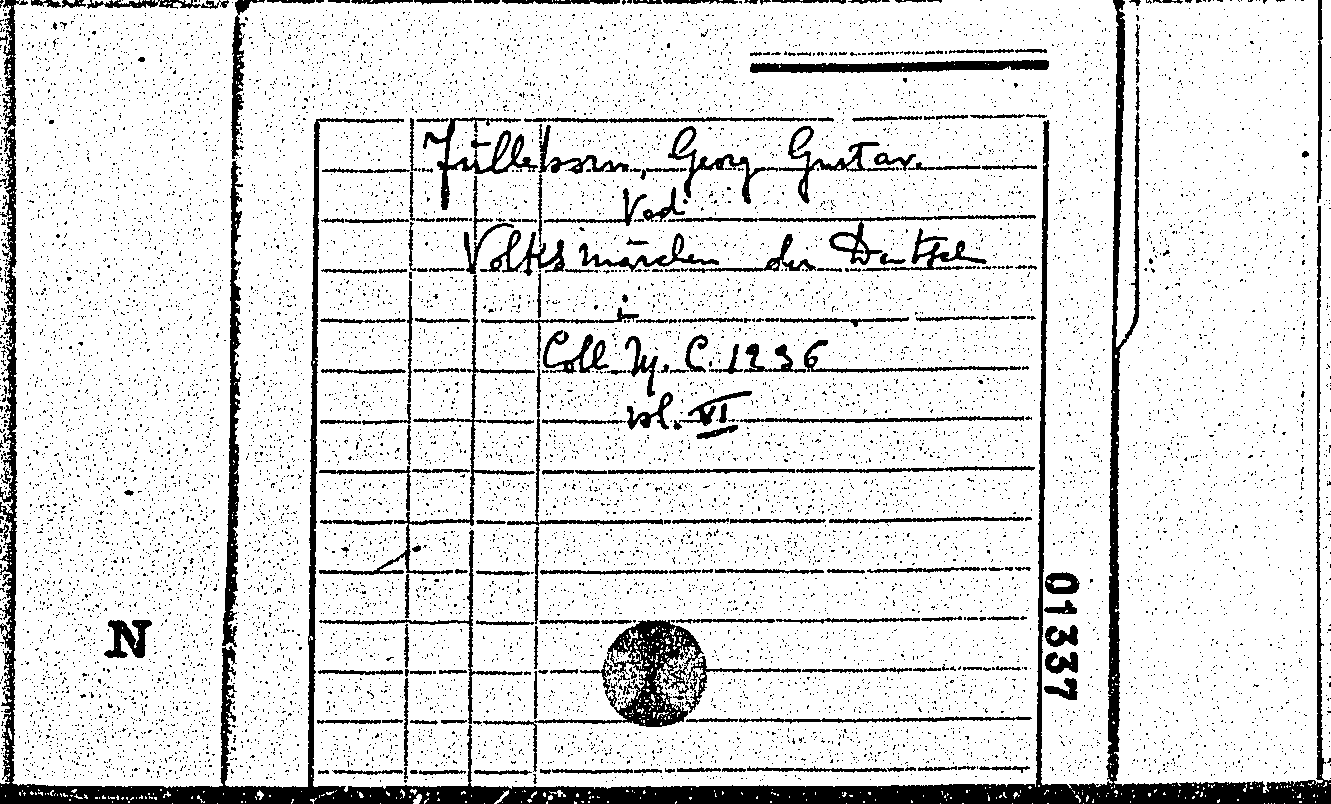 Fülleborn, Georg Gustav.
Ved
Volksmärchen der Deutsche
i
Coll. Ny. C. 1236
vol. VI
N
01337